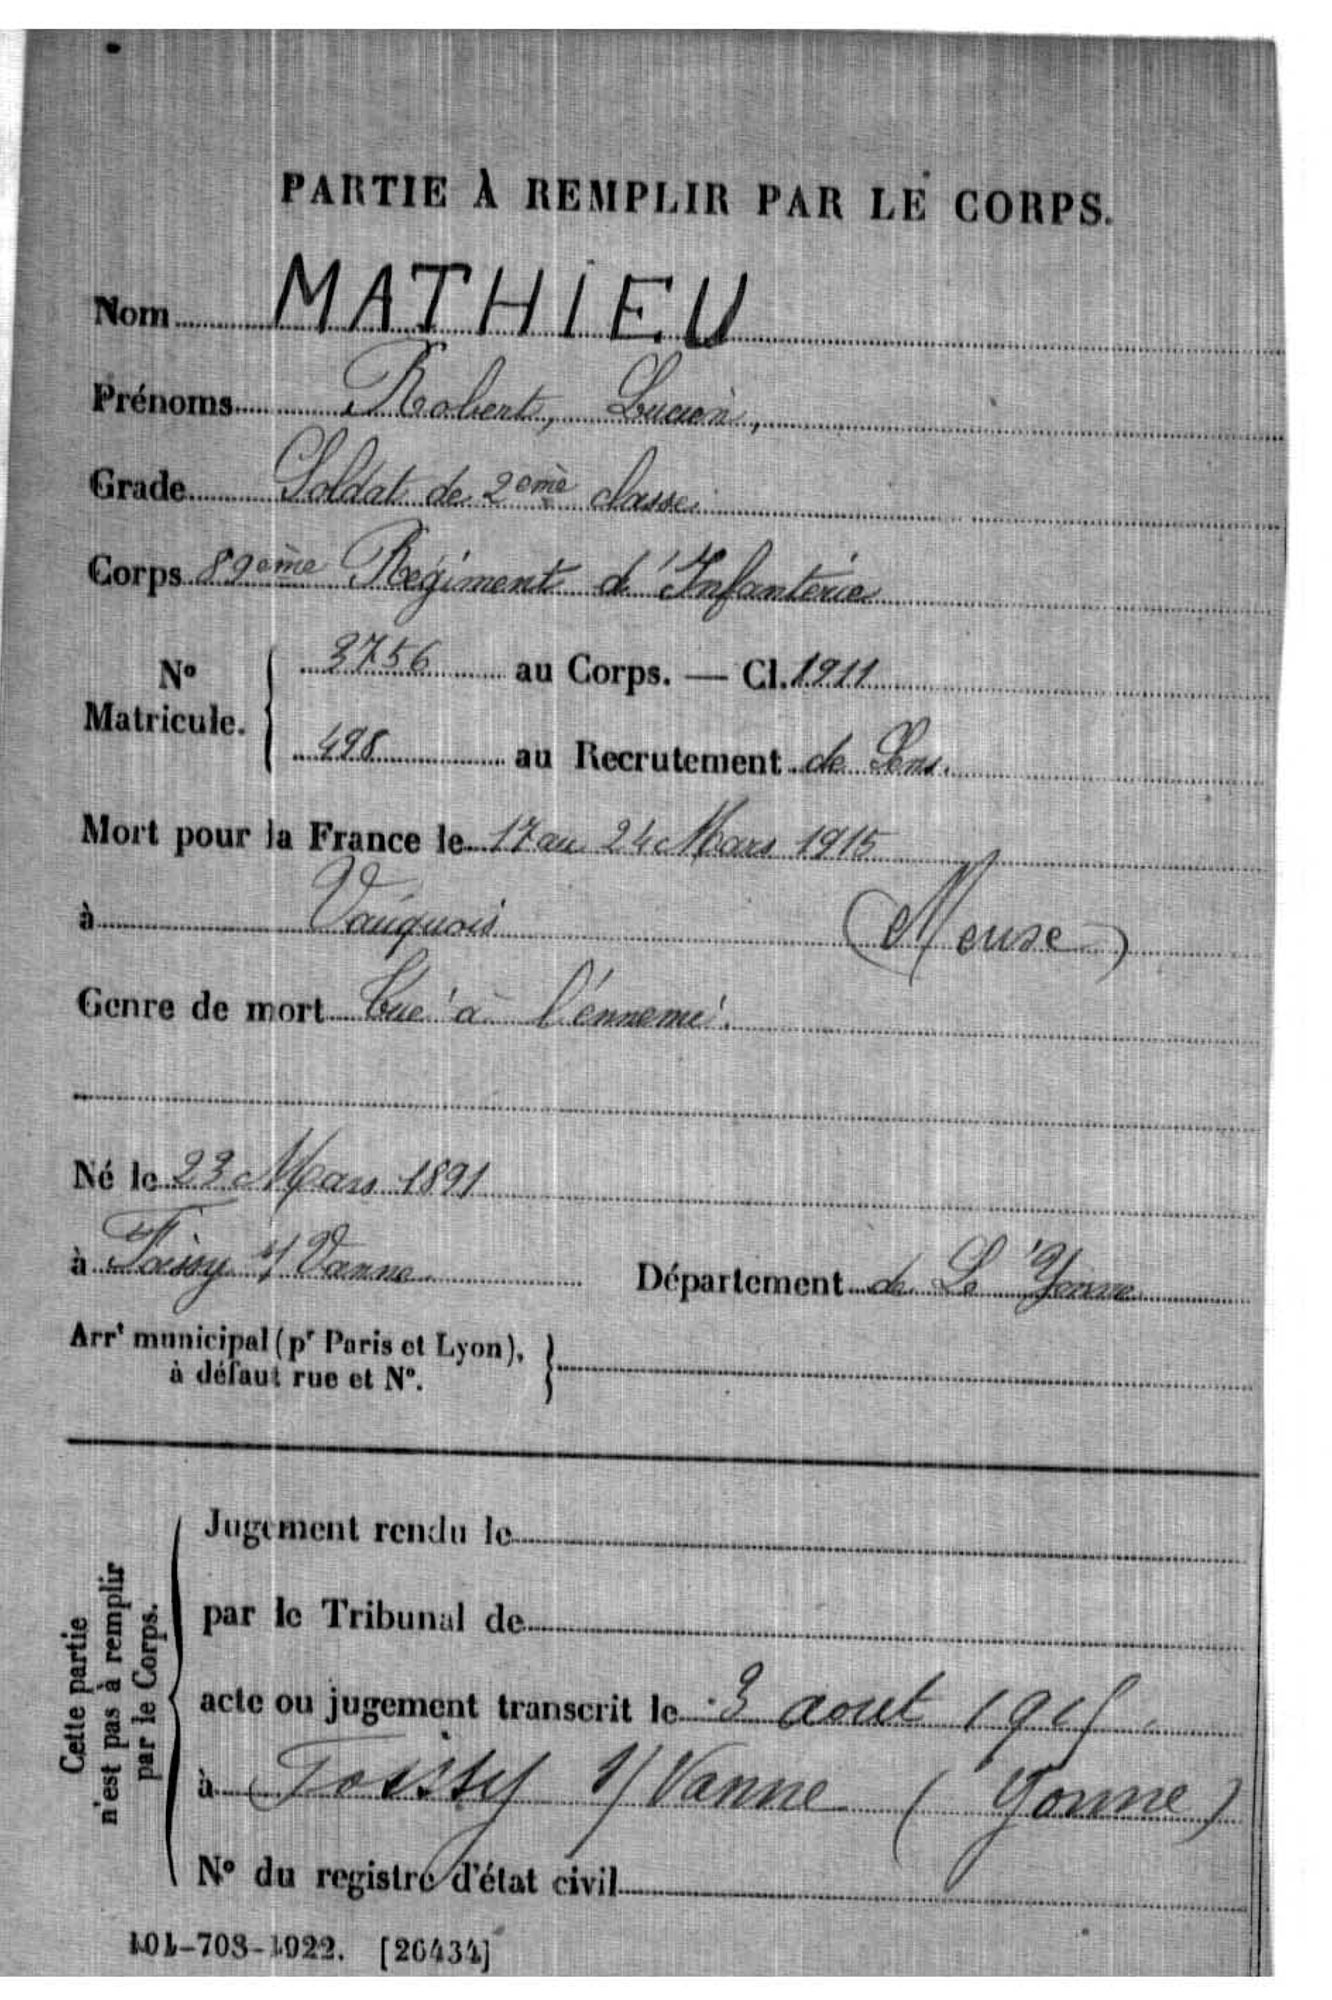 PARTIE À REMPLIR PAR LE CORPS.
Nom MATHIEU
Prénoms Robert, Lucien,
Grade Soldat de 2ème classe
Corps 89ème Régiment d'Infanterie
N° Matricule. 3756 au Corps. — Cl. 1911
498 au Recrutement de Sens.
Mort pour la France le 17 au 24 Mars 1915
à Vauquois (Meuse)
Genre de mort Tué à l'énnemi.
Né le 23 Mars 1891
à Foissy s/ Vanne Département de L'Yonne
Arrt municipal (pr Paris et Lyon),
à défaut rue et N°.
Cette partie
n'est pas à remplir
par le Corps.
Jugement rendu le
par le Tribunal de
acte ou jugement transcrit le 3 aout 1915.
à Foissy s/ Vanne (Yonne)
N° du registre d'état civil
101-708-1922. [26434]